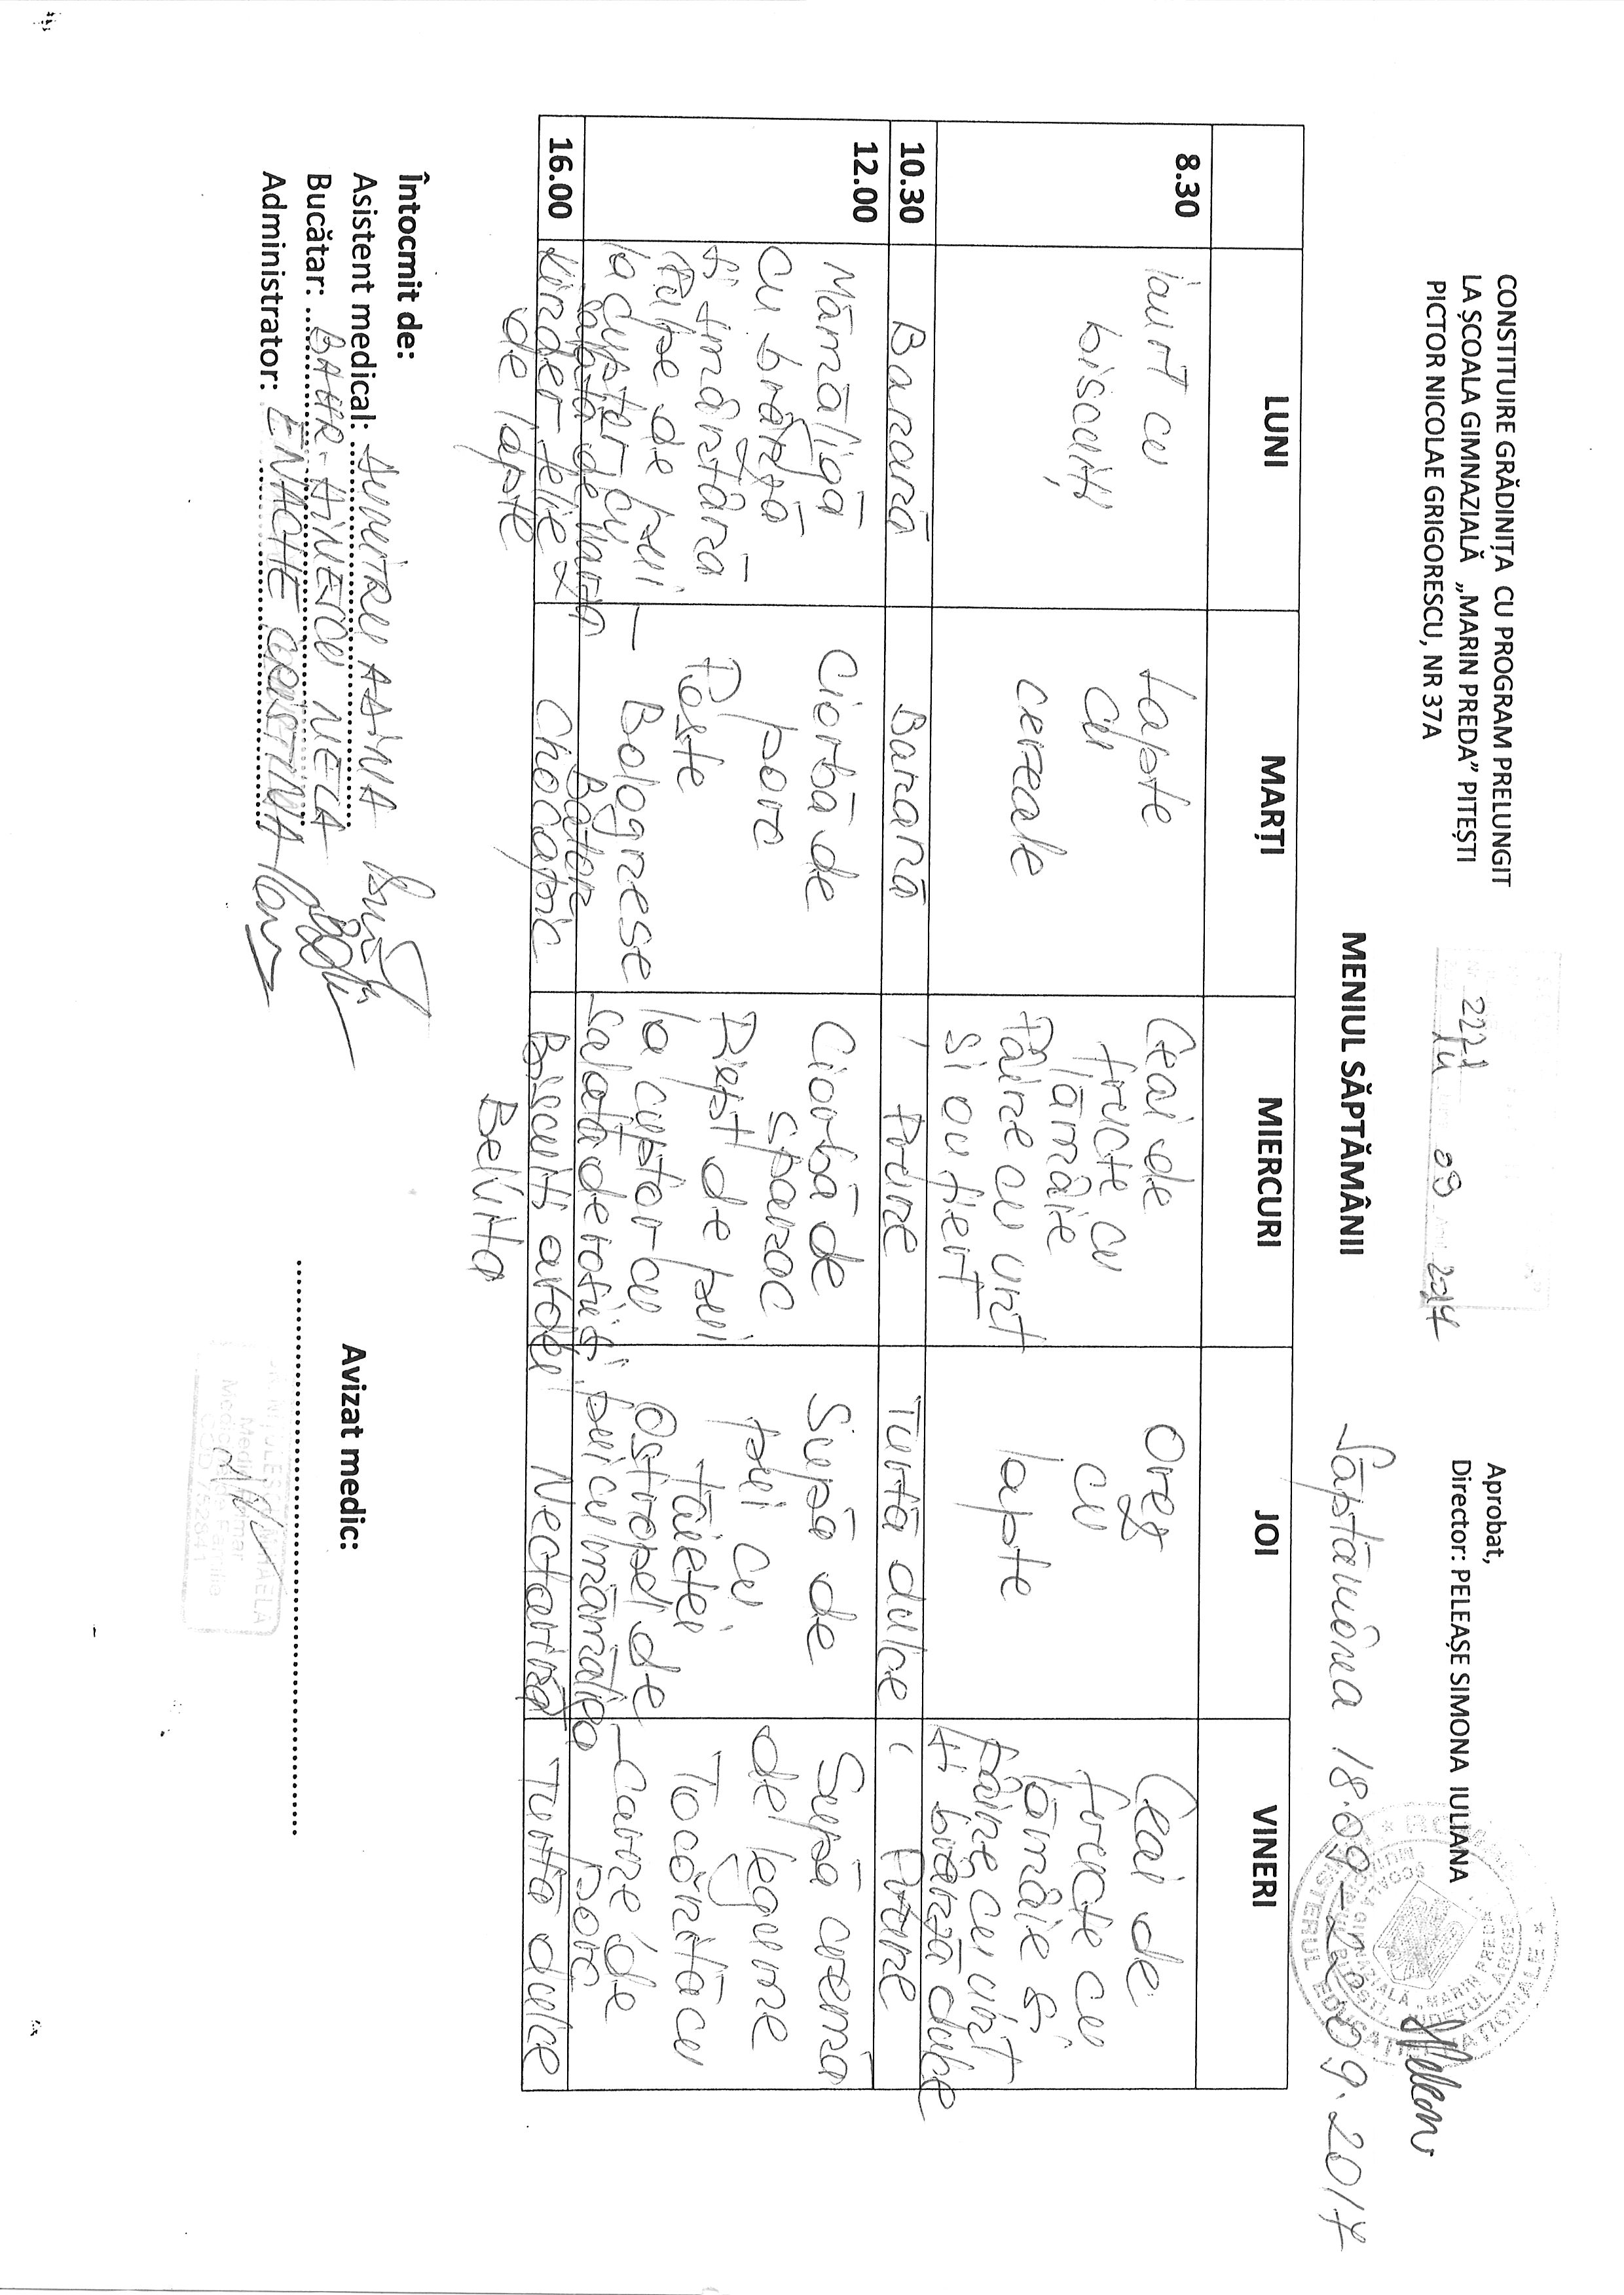 CONSTITUIRE GRĂDINIȚA CU PROGRAM PRELUNGIT
LA ȘCOALA GIMNAZIALĂ „MARIN PREDA" PITEȘTI
PICTOR NICOLAE GRIGORESCU, NR 37A
2221
09 2017
Aprobat,
Director: PELEAȘE SIMONA IULIANA
Săptămâna 18.09-22.09.2017
MENIUL SĂPTĂMÂNII
LUNI MARȚI MIERCURI JOI VINERI
8.30
iaurt cu
biscuiți
Lapte
cu
cereale
Ceai de
fructe cu
lămâie
Pâine cu unt
și ou fiert
Orez
cu
lapte
Ceai de
fructe cu
lămâie și
pâine cu unt
și brânză dulce
10.30
Banană
Banană
Prune
Turtă dulce
Prune
12.00
Mămăligă
cu brânză
și smântână
Pulpe de pui
la cuptor cu
salată de varză
Ciorbă de
porc
Paste
Bolognese
Ciorbă de
spanac
Piept de pui
la cuptor cu
Salată de roșii
Supă de
pui cu
tăieței
Ostropel de
pui cu mămăligă
Supă cremă
de legume
Tocăniță cu
carne de
porc
16.00
Kinder felie
de lapte
Baton
Chocapic
Biscuiți ovăz
Belvita
Nectarină
Turtă dulce
Întocmit de:
Asistent medical: DUMITRU ADINA
Bucătar:
Administrator: ENACHE CRISTINA
Avizat medic: